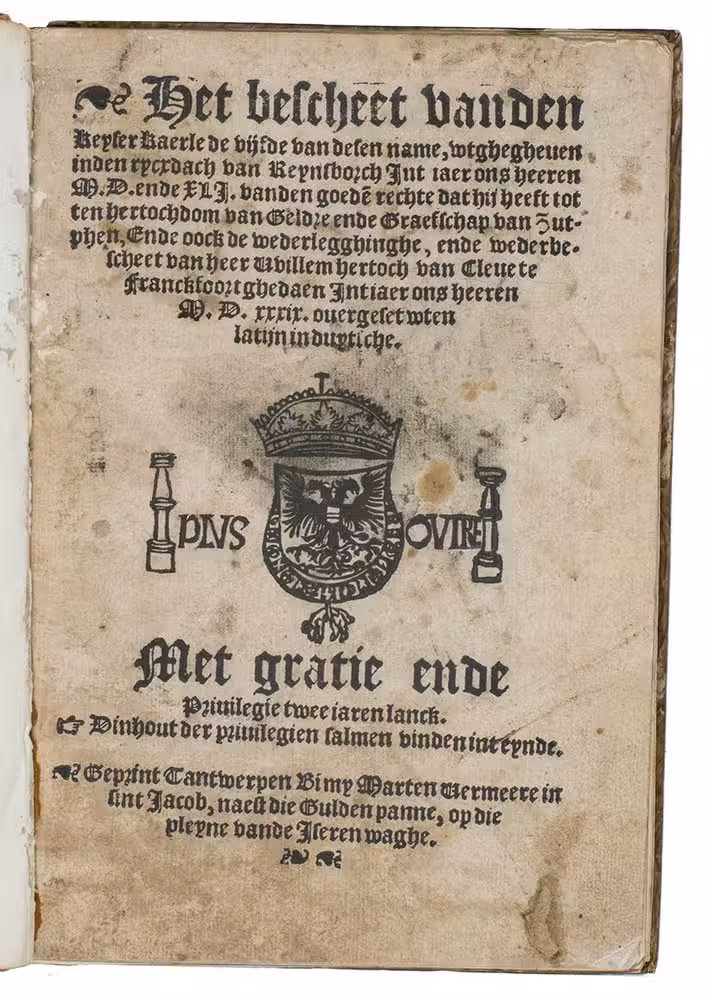 Het bescheet vanden
Keyser Kaerle de vijfde van desen name, wtghegheuen
inden rycxdach van Reynsborch Int iaer ons heeren
M.D. ende XLJ. vanden goedē rechte dat hij heeft tot
ten hertochdom van Geldre ende Graefschap van Zut-
phen, Ende oock de wederlegghinghe, ende wederbe-
scheet van heer Wvillem hertoch van Cleue te
Franckfoort ghedaen Int iaer ons heeren
M. D. xxxix. ouergeset wten
latijn in duytsche.
PLVS OVTRE
Met gratie ende
Priuilegie twee iaren lanck.
☞ Dinhout der priuilegien salmen vinden int eynde.
Geprint Tantwerpen Bi my Marten Vermeere in
sint Jacob, naest die Gulden panne, op die
pleyne vande Jseren waghe.